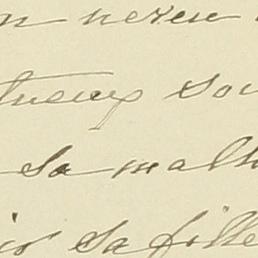 n neveu
tueux sou
sa malh
sa fille